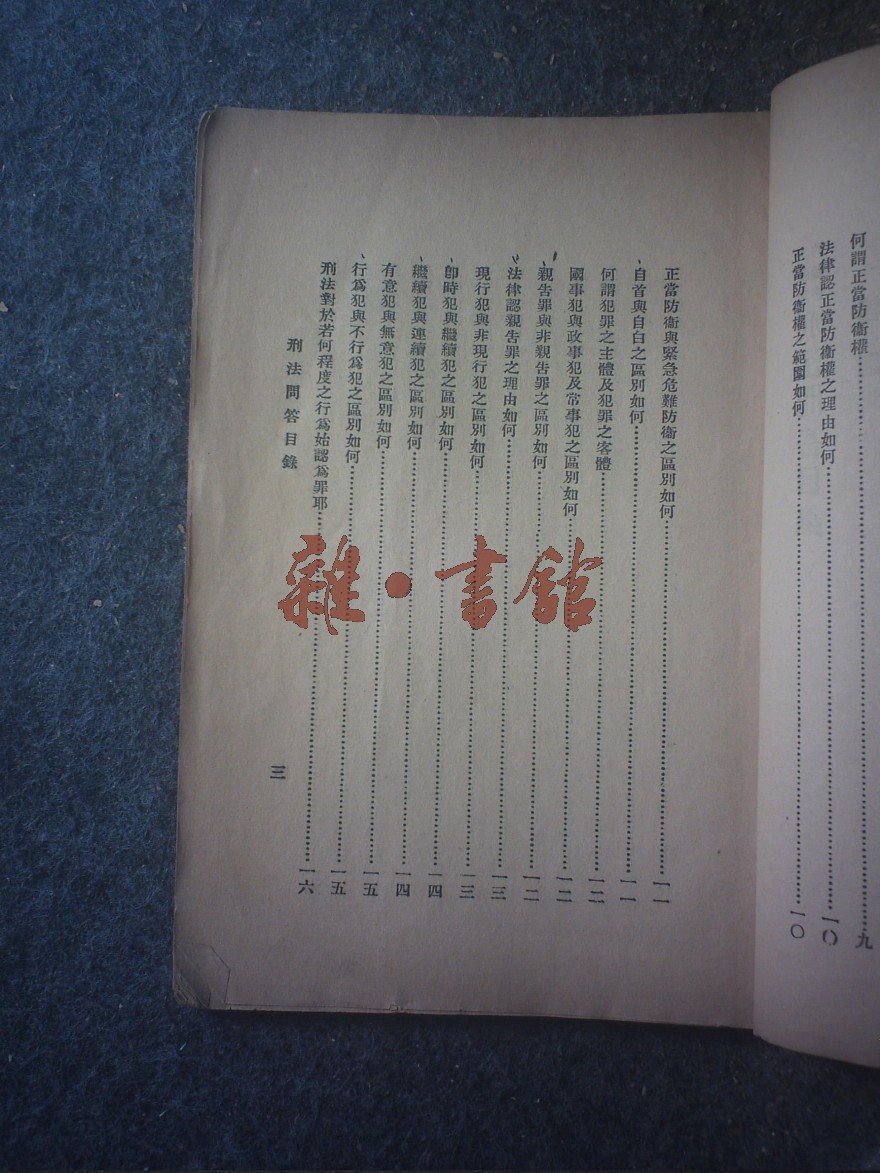 何謂正當防衞權……九
法律認正當防衞權之理由如何……一〇
正當防衞權之範圍如何……一〇
正當防衞與緊急危難防衞之區別如何……一一
自首與自白之區別如何……一一
何謂犯罪之主體及犯罪之客體……一二
國事犯與政事犯及常事犯之區別如何……一二
親告罪與非親告罪之區別如何……一二
法律認親告罪之理由如何……一三
現行犯與非現行犯之區別如何……一三
卽時犯與繼續犯之區別如何……一四
繼續犯與連續犯之區別如何……一四
有意犯與無意犯之區別如何……一五
行爲犯與不行爲犯之區別如何……一五
刑法對於若何程度之行爲始認爲罪耶……一六
刑法問答目錄
三
雜·書館